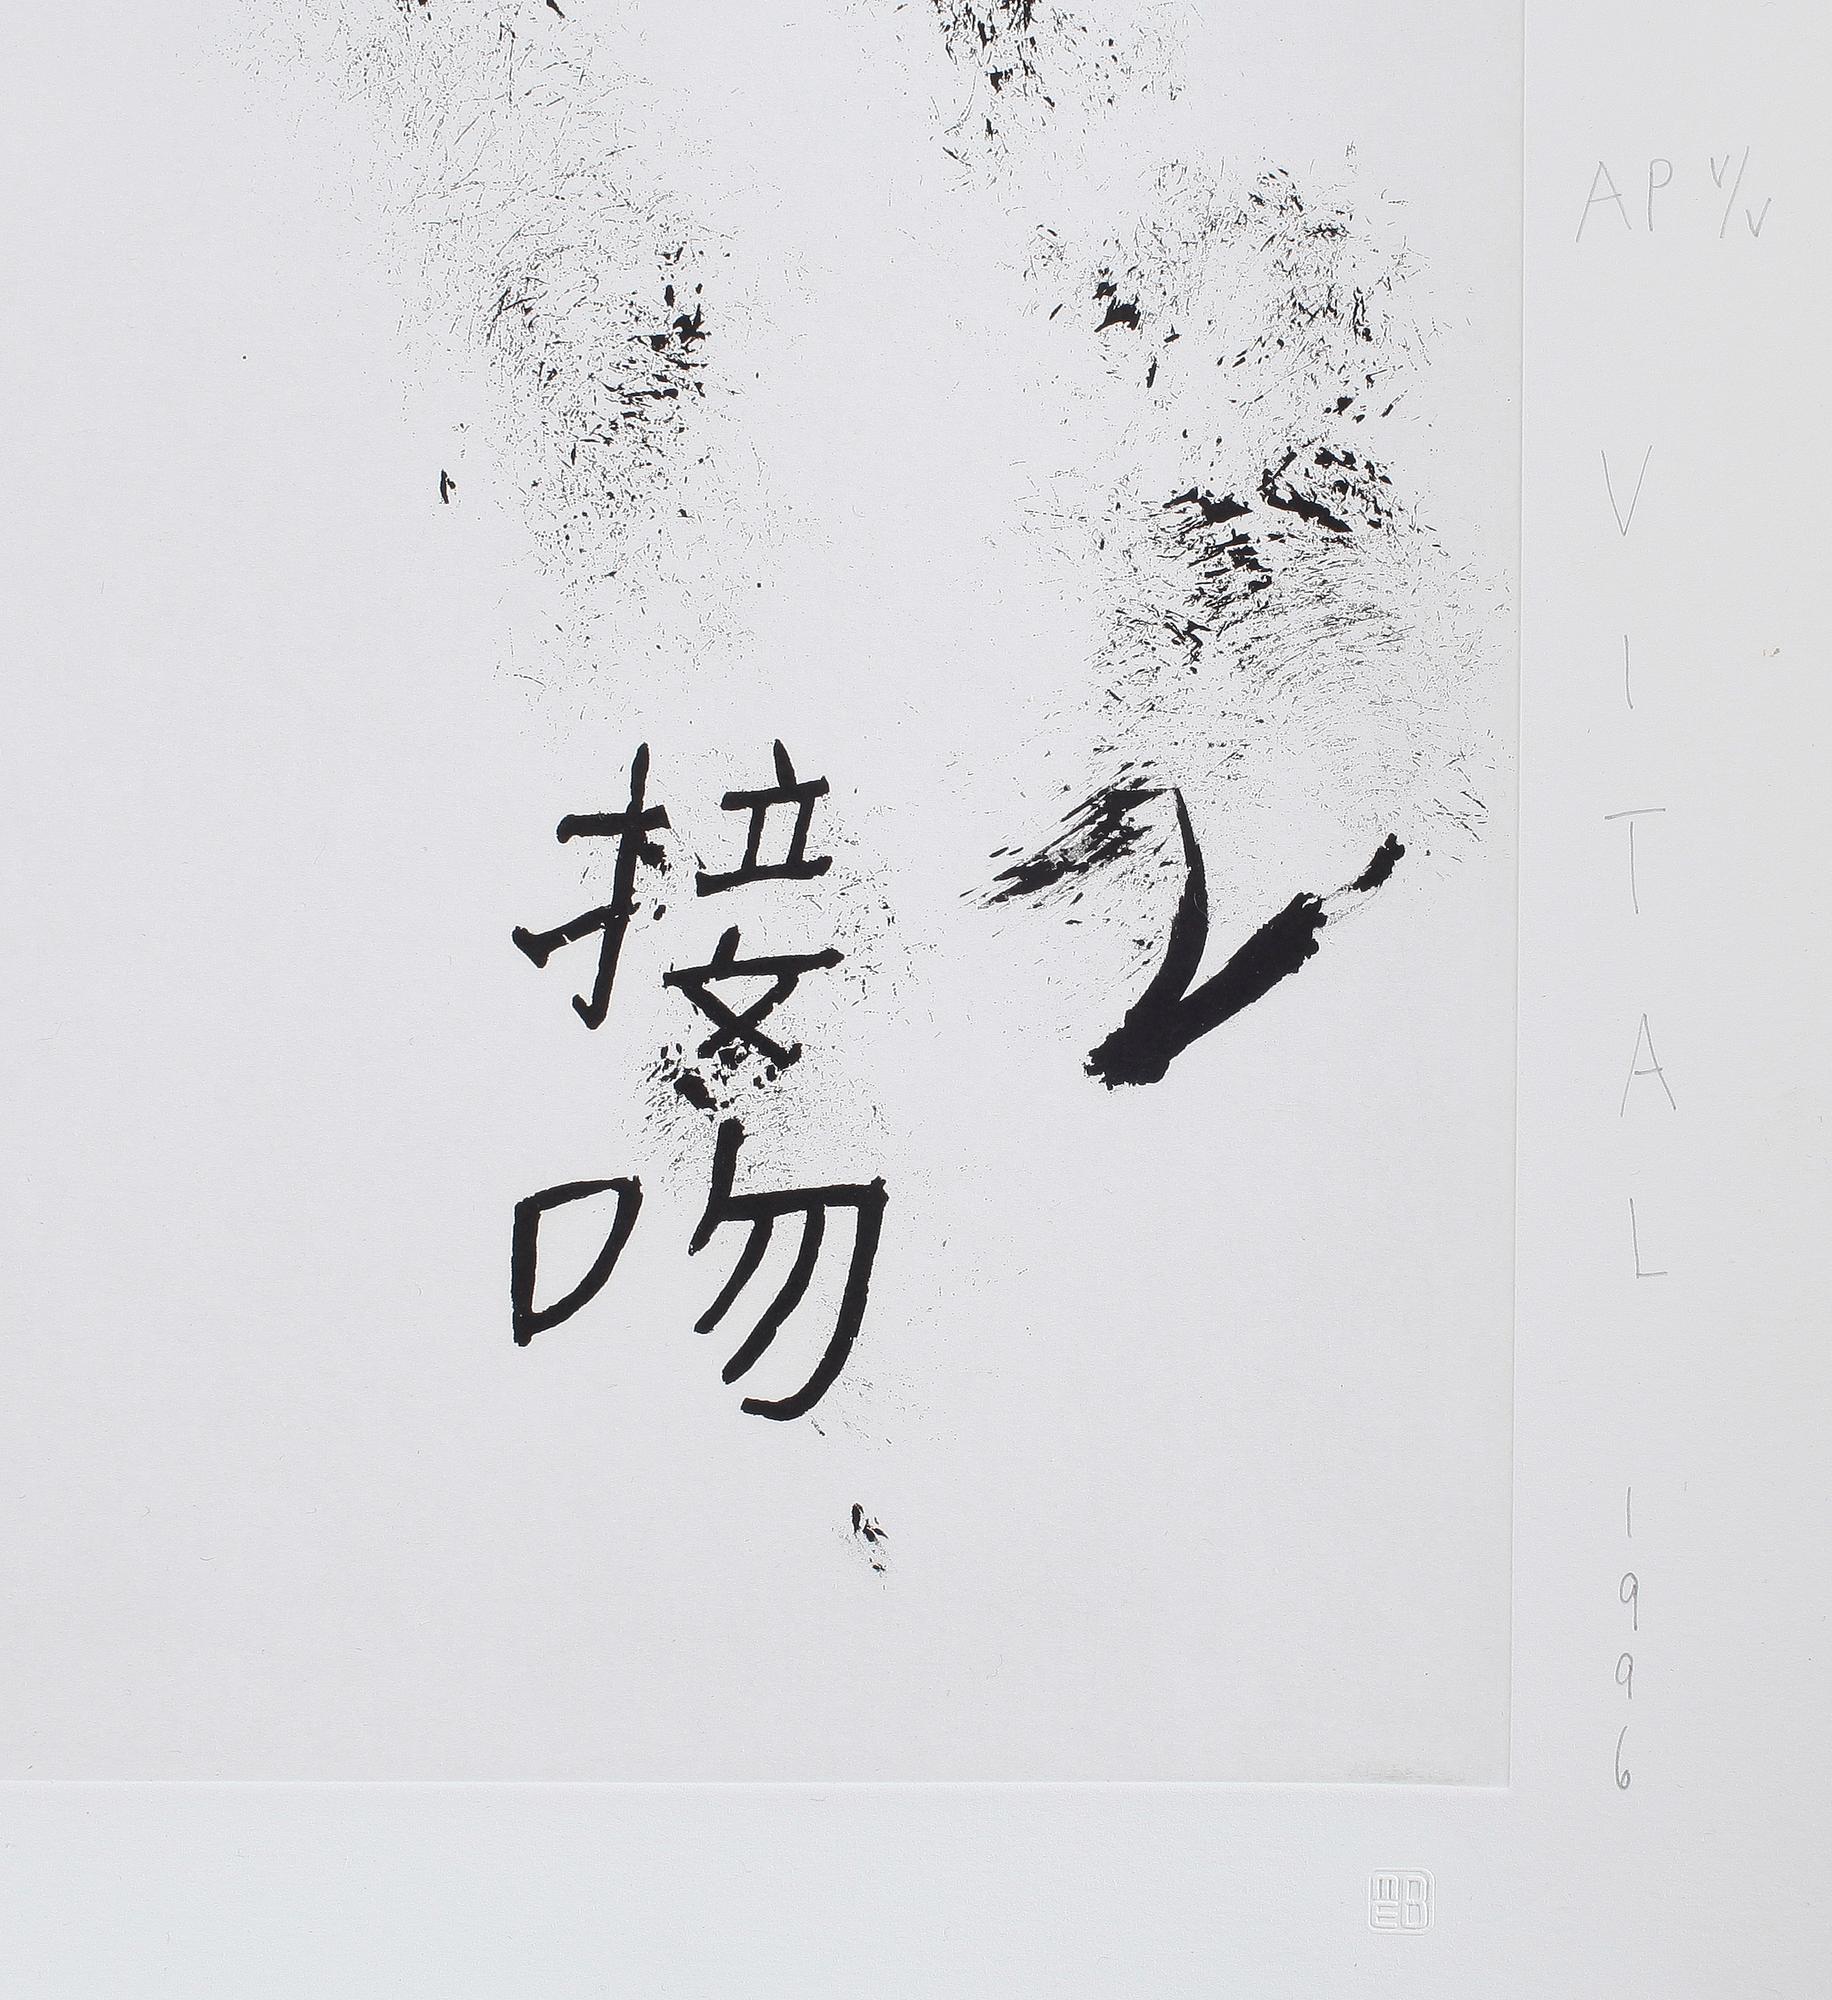 接吻
AP V/V
VITAL 1996